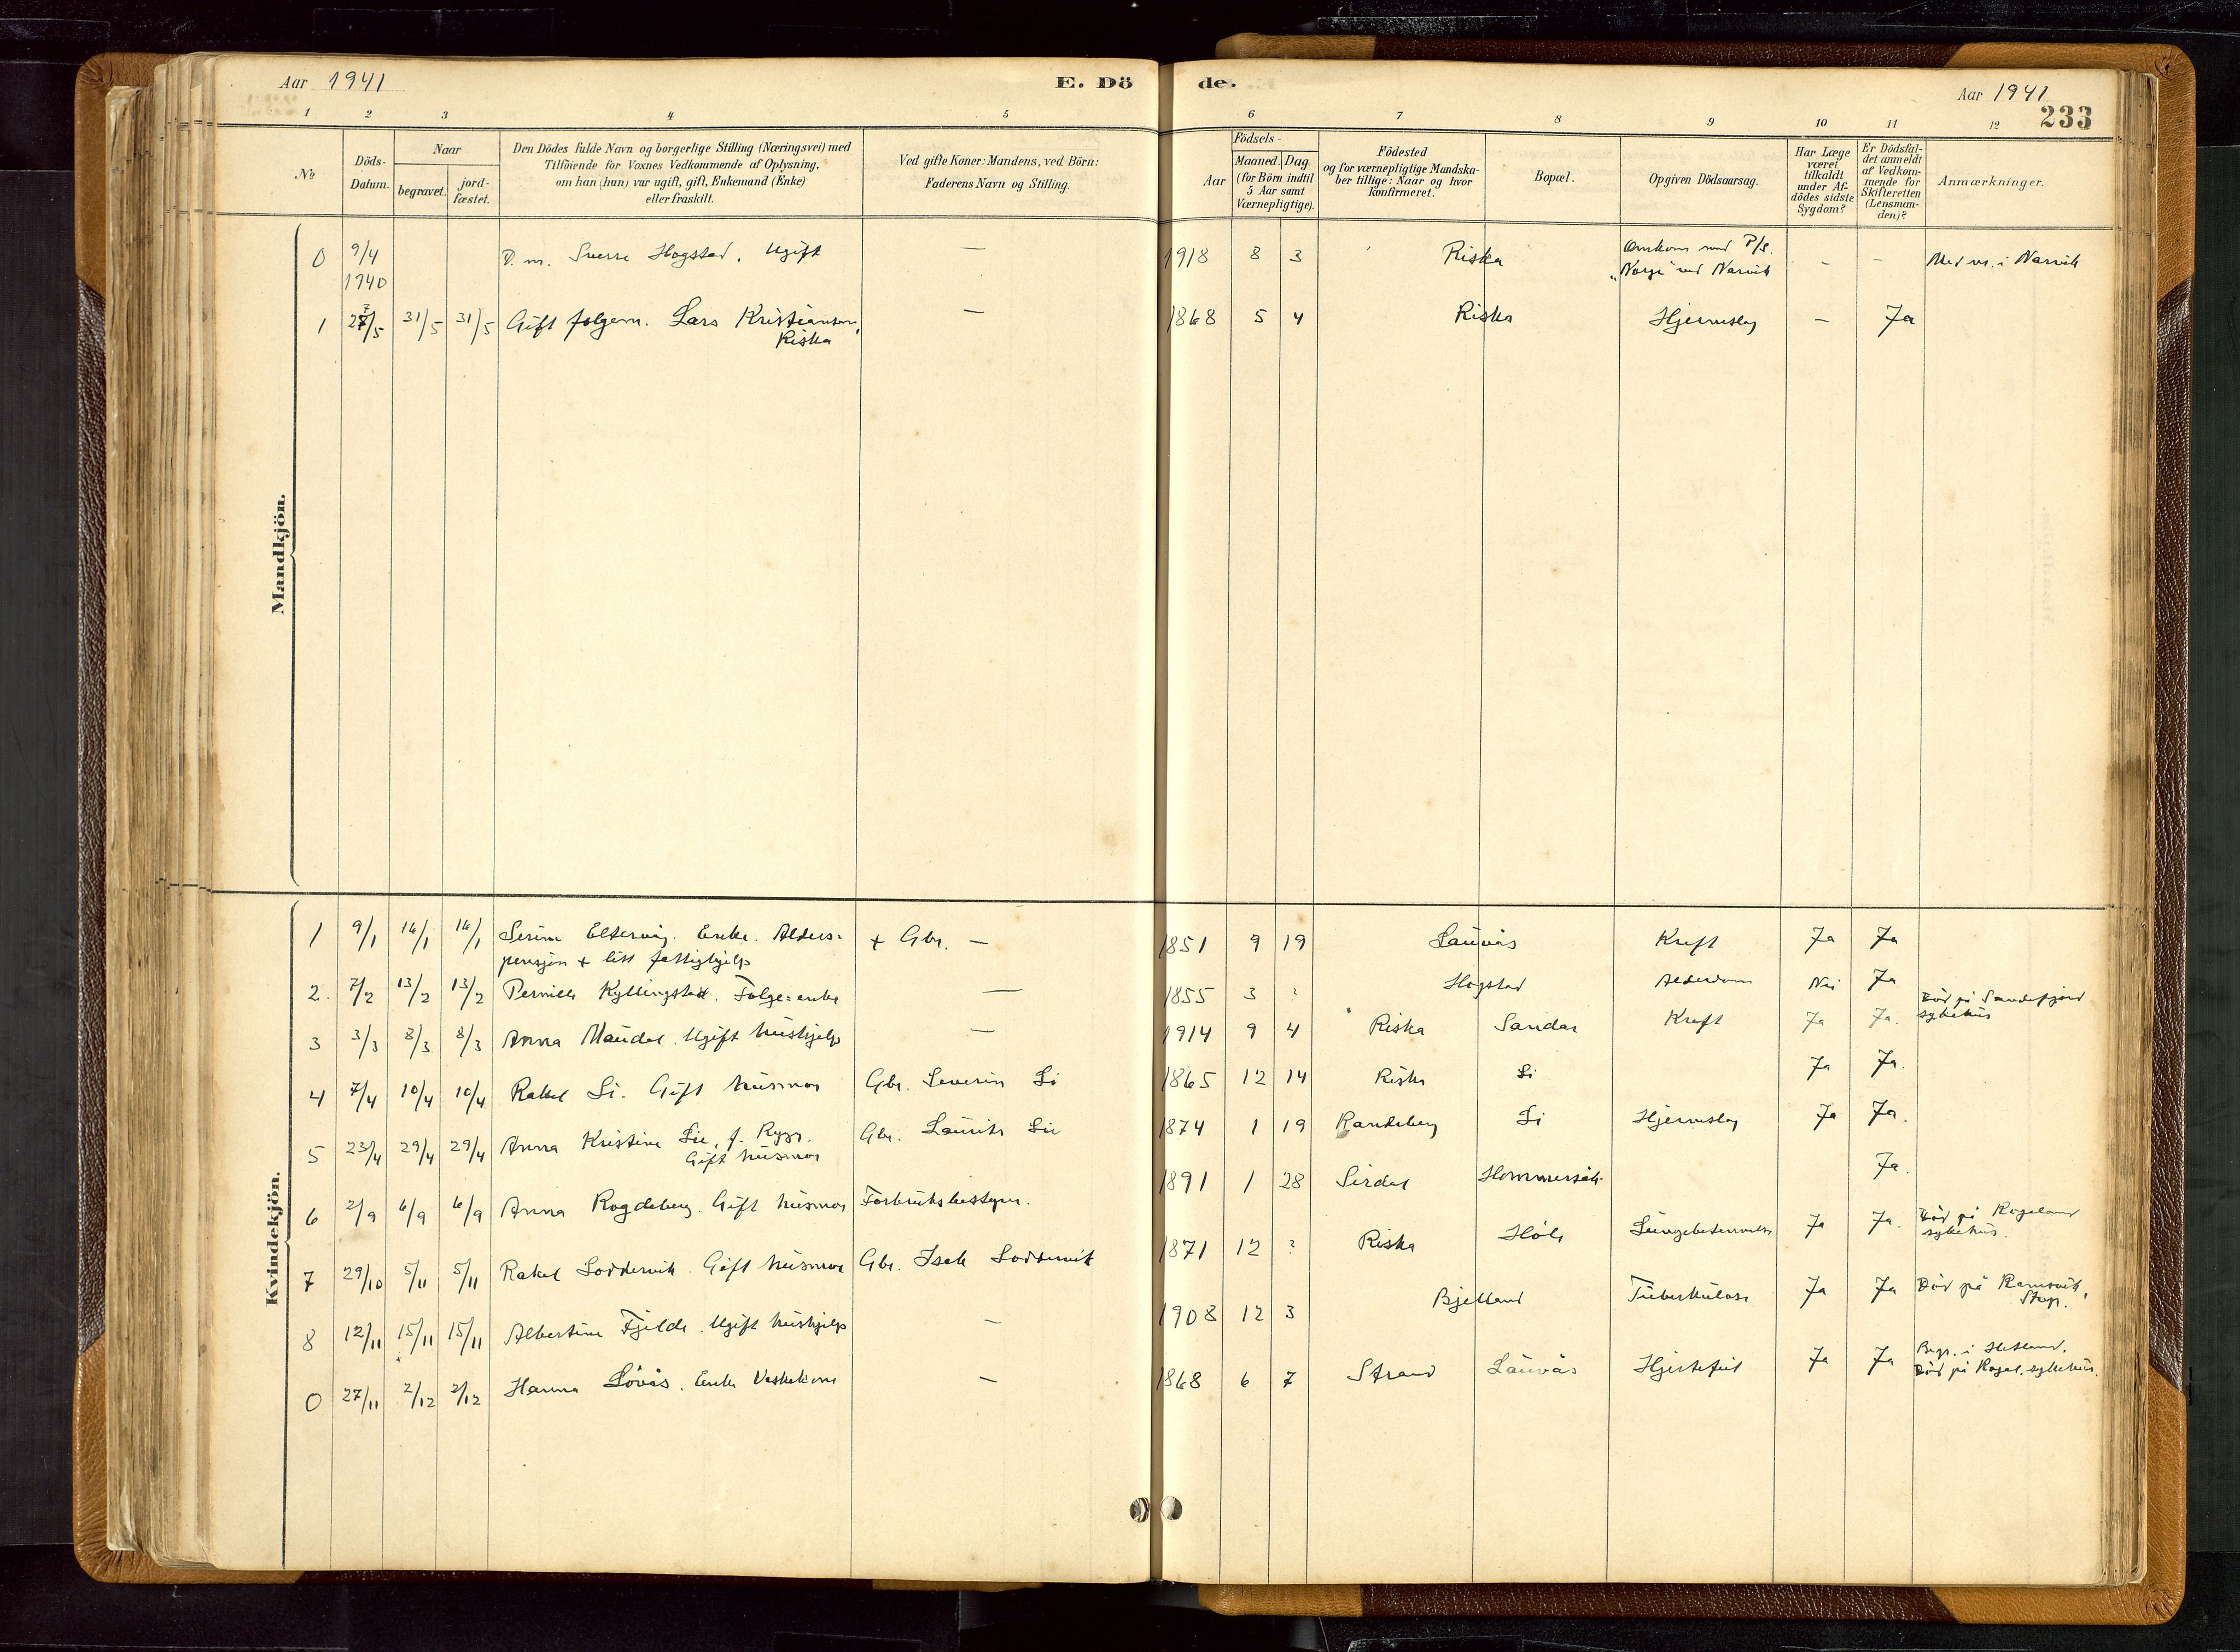 Aar 1941
E. Dö
de.
Aar 1941
233
1 2 3 4 5 6 7 8 9 10 11 12
№
Döds-
Datum.
Naar
begravet.
jord-
fæstet.
Den Dödes fulde Navn og borgerlige Stilling (Næringsvei) med
Tilföiende for Voxnes Vedkommende af Oplysning,
om han (hun) var ugift, gift, Enkemand (Enke)
eller fraskilt.
Ved gifte Koner: Mandens, ved Börn:
Faderens Navn og Stilling.
Aar
Födsels-
Maaned. Dag.
(for Börn indtil
5 Aar samt
Værnepligtige).
Födested
og for værnepligtige Mandska-
ber tillige: Naar og hvor
konfirmeret.
Bopæl.
Opgiven Dödsaarsag.
Har Læge
været
tilkaldt
under Af-
dödes sidste
Sygdom?
Er Dödsfal-
det anmeldt
af Vedkom-
mende for
Skifteretten
(Lensman-
den)?
Anmærkninger.
Mandkjön.
0 9/4 D. m. Sverre Hogstad. Ugift — 1918 8 3 Riska Omkom med P/s. – – Med m. i Narvik
1940 "Norge" ved Narvik
1 27/5 31/5 31/5 Gift folgem. Lars Kristiansen, — 1868 5 4 Riska Hjerneslag – Ja
Riska
Kvindekjön.
1 9/1 14/1 14/1 Serine Eltervåg. Enke. Alders= + Gbr. — 1851 9 19 Lauvås Kreft Ja Ja
pensjon + litt fattighjelp
2. 7/2 13/2 13/2 Pernille Kyllingstad. Folge=enke — 1855 3 ? Hogstad Alderdom Nei Ja
3 3/3 8/3 8/3 Anna Maudal. Ugift hushjelp — 1914 9 4 Riska Sandar Kreft Ja Ja. Död på Sandefjord
sykehus
4 7/4 10/4 10/4 Rakel Li. Gift husmor Gbr. Severin Li 1865 12 14 Riska Li Ja Ja.
5 23/4 29/4 29/4 Anna Kristine Lie, f. Rygg. Gbr. Laurits Lie 1874 1 19 Randeberg Li Hjerneslag Ja Ja.
Gift husmor
6 2/9 6/9 6/9 Anna Rogdeberg. Gift husmor Forbruksbestyrer. 1891 1 28 Sirdal Hommersåk. Ja.
7 29/10 5/11 5/11 Rakel Loddervik Gift husmor Gbr. Isak Loddervik 1871 12 ? Riska Höle Lungebetennelse Ja Ja. Död på Rogaland
sykehus.
8 12/11 15/11 15/11 Albertine Fjelde. Ugift hushjelp — 1908 12 3 Bjelland Tuberkulose Ja Ja Död på Ramsvik,
0 27/11 2/12 2/12 Hanna Lövås. Enke Vaskekone — 1868 6 7 Strand Lauvås Hjertefeil Ja Ja Begr. i Hetland.
Död på Rogal. sykehus.